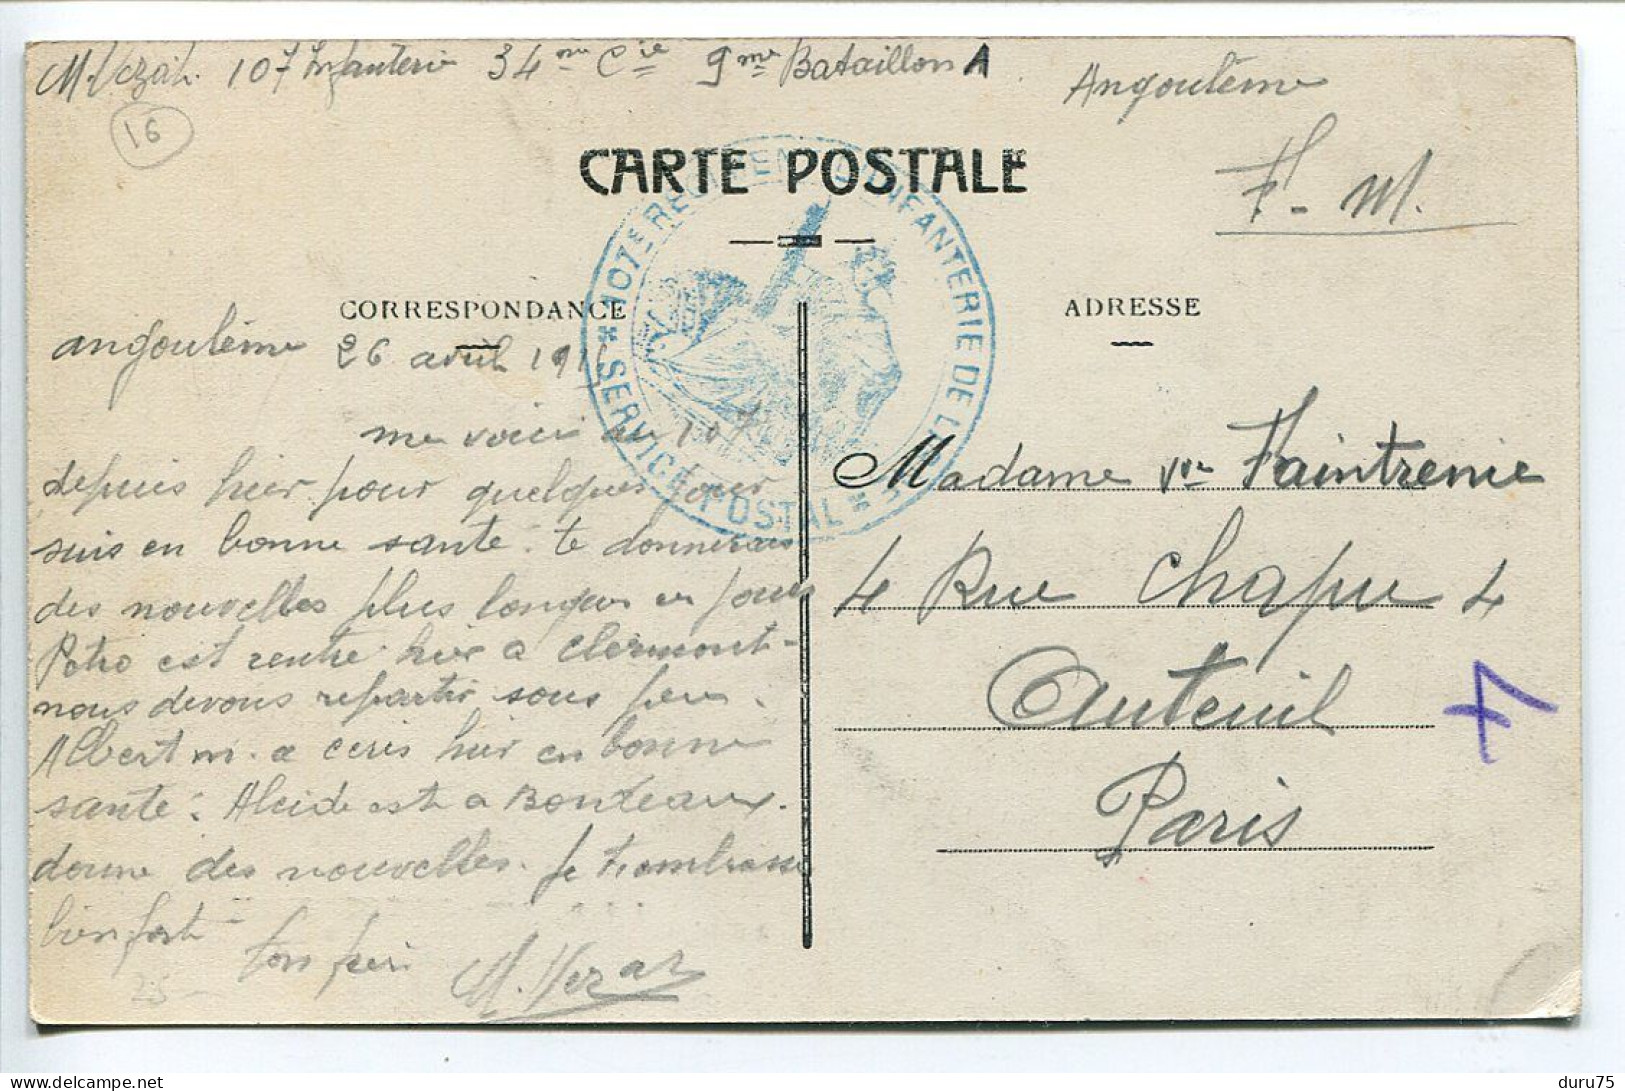 107 Infanterie 34me Cie 9me Bataillon A Angoulême
16
F. M.
CARTE POSTALE
107E REGIMENT D'INFANTERIE DE LIGNE
* SERVICE POSTAL *
CORRESPONDANCE
ADRESSE
angoulême 26 avril 191
me voici au 107
depuis hier pour quelques jour
suis en bonne santé. te donnerais
des nouvelles plus longue en jours
est rentré hier a Clermont-
nous devons repartir sous peu.
Albert m. a ecris hier en bonne
santé. Alcide est a Bordeaux.
donne des nouvelles. je t'embrasse
bien fort
ton frere
M.
Madame Vve Faintrenie
4 Rue Chapu 4
Auteuil
Paris
4
25-
duru75